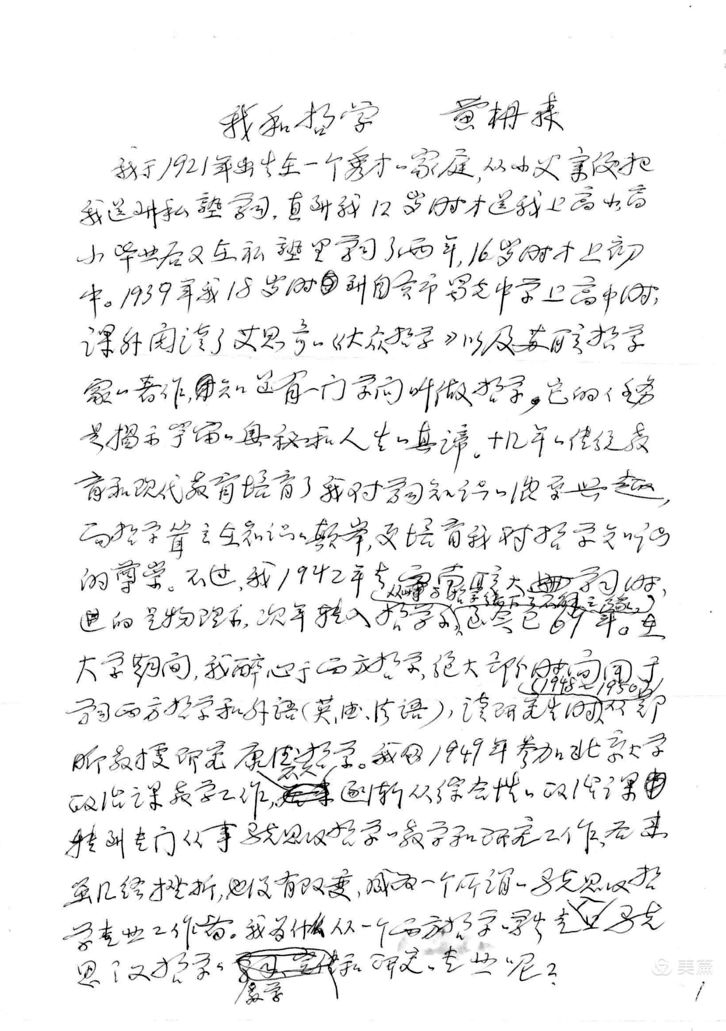 我和哲学 黄枬森
我于1921年出生在一个秀才的家庭,从小父亲便把
我送到私塾学习,直到我12岁时才送我上高小,高
小毕业后又在私塾里学习了两年,16岁时才上初
中。1939年我18岁时到自贡市蜀光中学上高中时,
课外阅读了艾思奇的《大众哲学》以及苏联哲学
家的著作,知道有一门学问叫做哲学,它的任务
是揭示宇宙的奥秘和人生的真谛。十几年的传统教
育和现代教育培育了我对学习知识的浓厚兴趣,
而哲学耸立在知识的颠峰,更培育我对哲学知识
的尊崇。不过,我1942年考西南联大学习时,
进的是物理系,次年转入哲学系,从此与哲学结下不解之缘,迄今已69年。在
大学期间,我醉心于西方哲学,绝大部分时间用于
学习西方哲学和外语(英、德、法语),读研究生时(1948—1950)从郑
昕教授研究康德哲学。我因1949年参加北京大学
政治课教学工作,逐渐从综合性的政治课
转到专门从事马克思主义哲学的教学和研究工作,后来
虽几经挫折,也没有改变,成为一个所谓的马克思主义哲
学专业工作者。我为什么从一个西方哲学的学生走上马克
思主义哲学的教学和研究的专业呢?
1
美篇